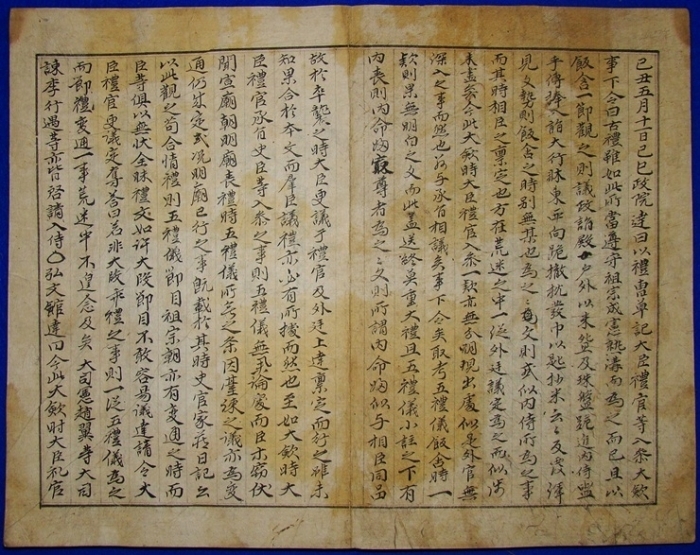 己丑五月十日己巳政院達曰以禮曹單記大臣禮官等入參大斂
事下令曰古禮雖如此所當遵守祖宗成憲 而爲之而已且以
飯含一節觀之則議政詣殿戶外以米盤及珠盤跪進內侍盥
手傳捧入詣大行牀東 向跪撤枕 巾以匙抄米云云及
見文勢則飯含之時別無某也爲之之文則或似內侍所爲之事
而其時相臣之稟定也方在荒迷之中一從外廷議定爲之而似涉
未盡矣今此大斂時大臣禮官入參一款亦無分明現出處似是外官無
深入之事而然也 與承旨相議矣事下令矣取考五禮儀飯含時一
款則果無明白之文而此蓋送終莫重大禮且五禮儀小註之下有
內喪則內命婦最尊者爲之之文則所謂內命婦似與相臣同品
故於卒襲之時大臣更議于禮官及外廷上達稟定而行之雖未
知果合於本文而羣臣議禮亦必有所據而然也至如大斂時大
臣禮官承旨史臣等入參之事則五禮儀無所論 而臣等竊伏
聞宣廟朝明廟喪禮時五禮儀所無之条因臺諫之議亦爲變
通仍爲定式况明廟已行之事旣載於其時史官家藏日記云
以此觀之苟合情禮則五禮儀節目祖宗朝亦有變通之時而
臣等俱以無狀全昧禮文如許大段節目不敢容易議達請令大
臣禮官更議定奪答曰若非大段乖禮之事則一從五禮儀爲之
而節禮變通一事荒迷中不遑念及矣 大司憲趙翼等大司
諫李行遇等亦皆啓請入侍○弘文館達曰今此大斂時大臣礼官